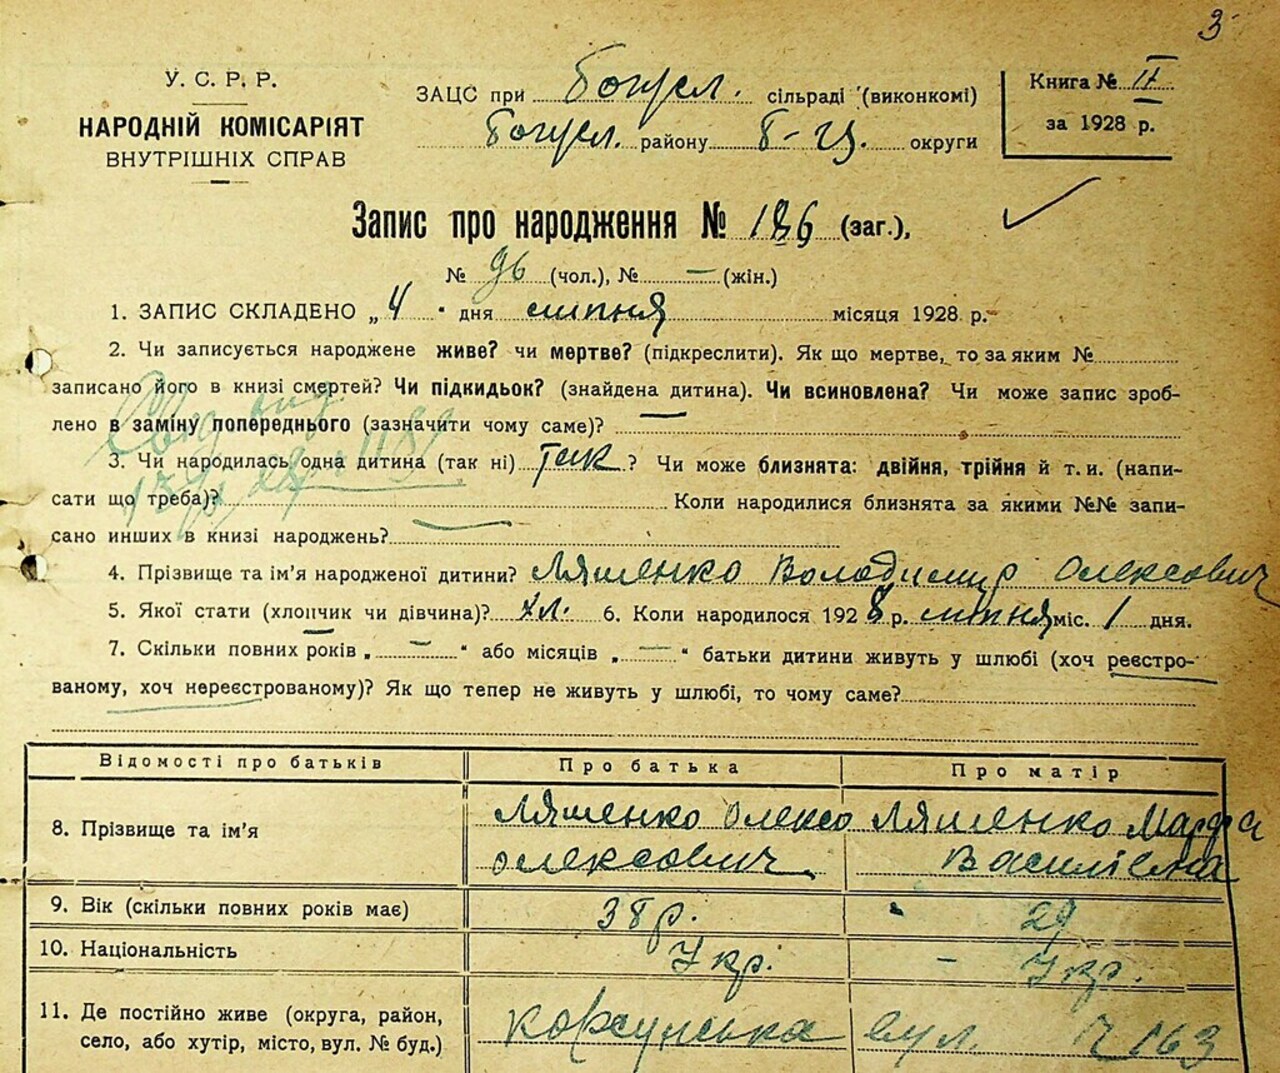 3
У. С. Р. Р.
НАРОДНІЙ КОМІСАРІЯТ
ВНУТРІШНІХ СПРАВ
ЗАЦС при Богусл. сільраді (виконкомі)
Богусл. району Б-Ц. округи
Книга № II
за 1928 р.
Запис про народження № 186 (заг.),
№ 96 (чол.), № — (жін.)
1. ЗАПИС СКЛАДЕНО „4" дня липня місяця 1928 р.
2. Чи записується народжене живе? чи мертве? (підкреслити). Як що мертве, то за яким №
записано його в книзі смертей? Чи підкидьок? (знайдена дитина). Чи всиновлена? Чи може запис зроб-
лено в заміну попереднього (зазначити чому саме)? —
3. Чи народилась одна дитина (так ні) так ? Чи може близнята: двійня, трійня й т. и. (напи-
сати що треба)? Коли народилися близнята за якими №№ запи-
сано инших в книзі народжень? —
4. Прізвище та ім'я народженої дитини? Ляшенко Володимир Олексович
5. Якої стати (хлопчик чи дівчина)? хл. 6. Коли народилося 1928 р. липня міс. 1 дня.
7. Скільки повних років „ — " або місяців „ — " батьки дитини живуть у шлюбі (хоч реєстро-
ваному, хоч нереєстрованому)? Як що тепер не живуть у шлюбі, то чому саме?
Відомості про батьків Про батька Про матір
8. Прізвище та ім'я Ляшенко Олексо Ляшенко Марфа
Олексович Василівна
9. Вік (скільки повних років має) 38 р. 29
10. Національність Укр. – Укр.
11. Де постійно живе (округа, район,
село, або хутір, місто, вул. № буд.) Корсунська вул. Ч 163